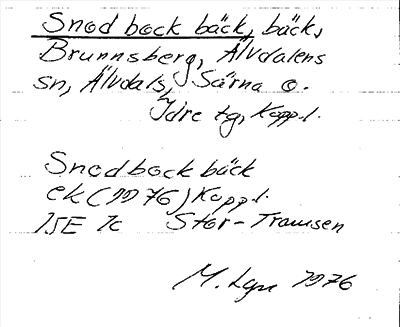 Snodbockbäck, bäck,
Brunnsberg, Älvdalens
sn, Älvdals, Särna o.
Idre tg, Kopp. l.
Snodbockbäck
ek (1976) Kopp. l.
15E 7c Stor-Tramsen
M. Lgn 1976